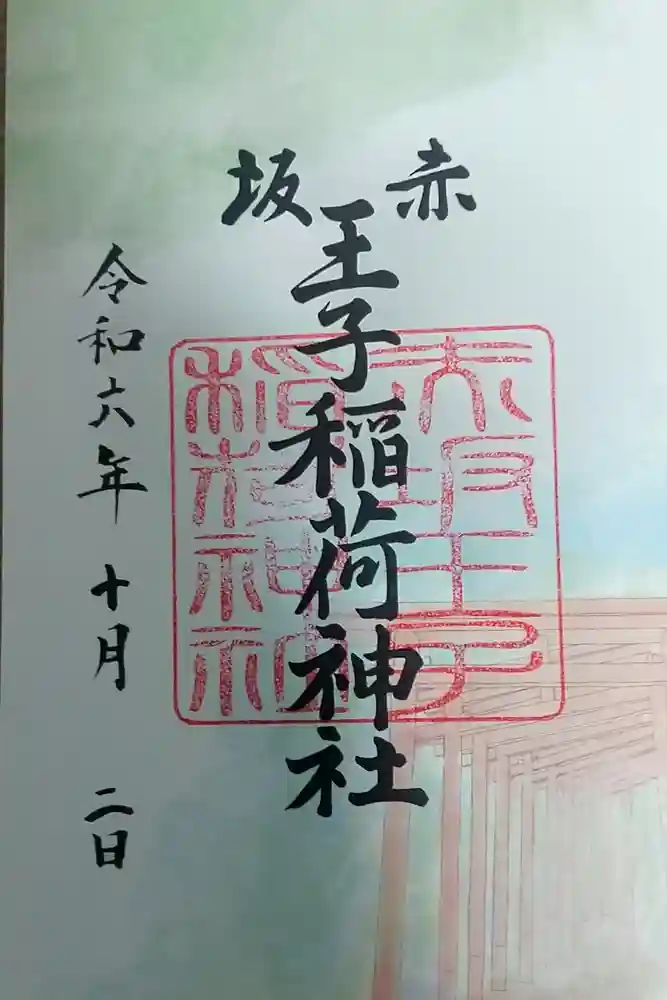 赤坂
王子稲荷神社
令和六年十月二日
赤坂王子
稲荷神社